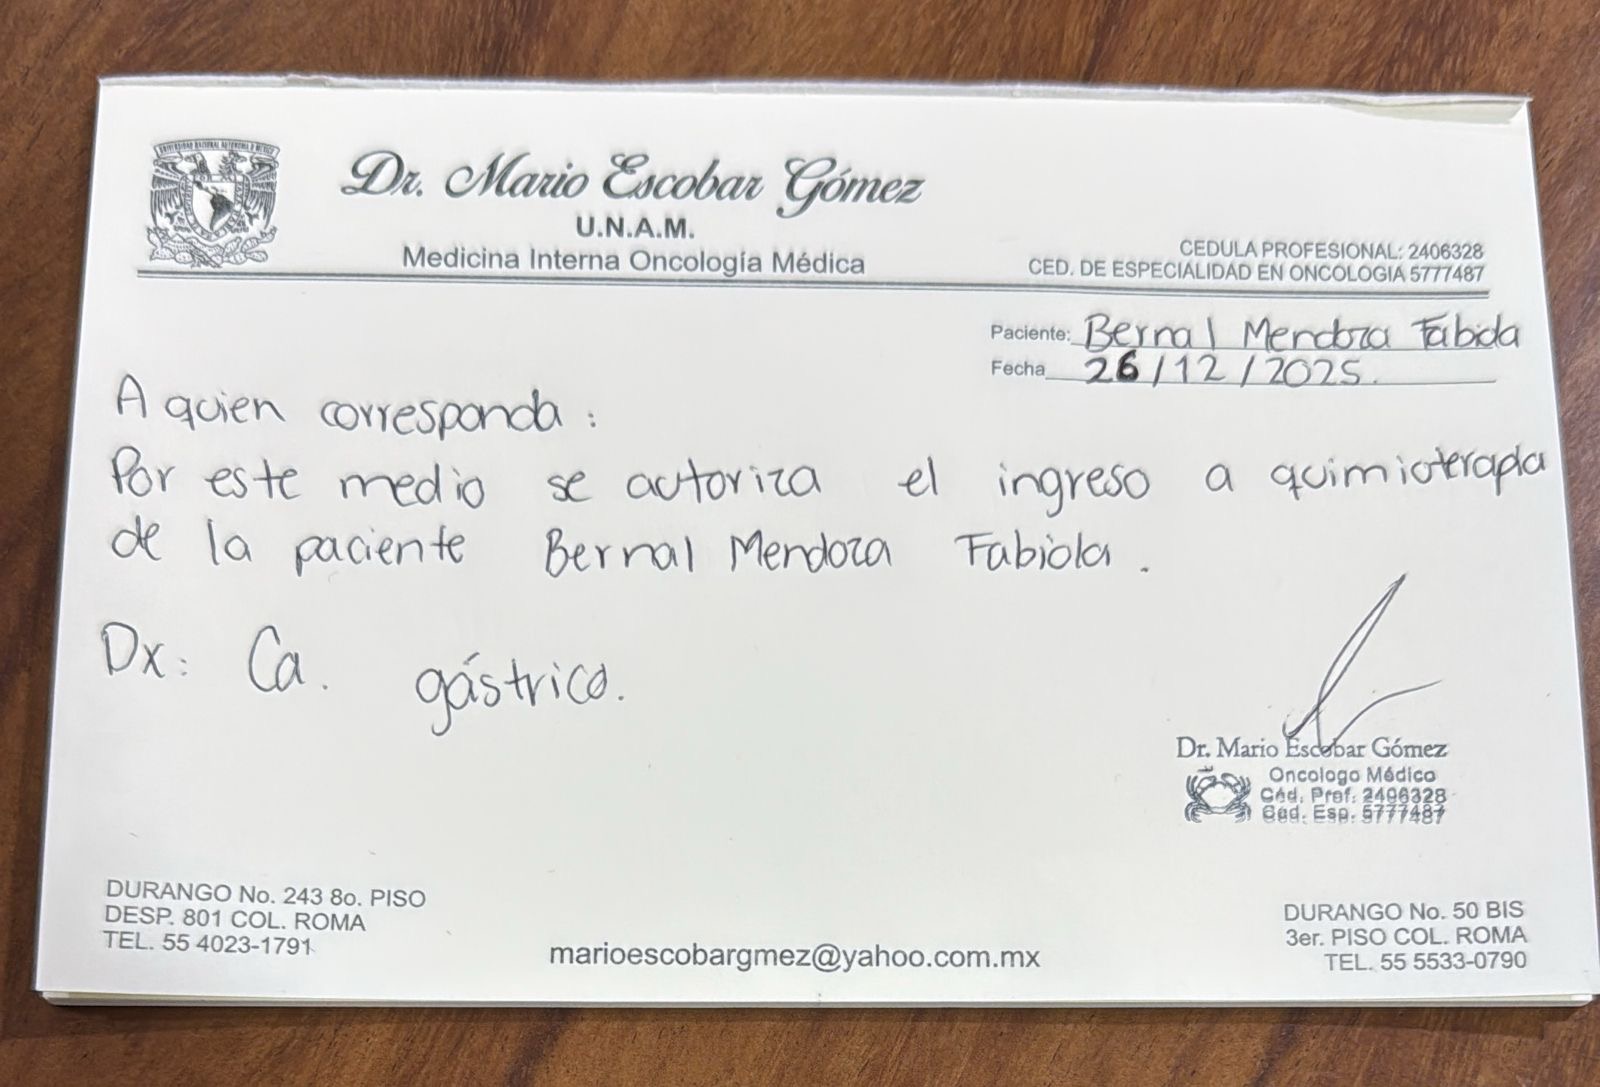 UNIVERSIDAD NACIONAL AUTONOMA D MEXICO
Dr. Mario Escobar Gómez
U.N.A.M.
Medicina Interna Oncología Médica
CEDULA PROFESIONAL: 2406328
CED. DE ESPECIALIDAD EN ONCOLOGIA 5777487
Paciente: Bernal Mendoza Fabiola
Fecha 26/12/2025.
A quien corresponda:
Por este medio se autoriza el ingreso a quimioterapia
de la paciente Bernal Mendoza Fabiola.
Dx: Ca. gástrico.
Dr. Mario Escobar Gómez
Oncologo Médico
Céd. Prof. 2406328
Ced. Esp. 5777487
DURANGO No. 243 8o. PISO
DESP. 801 COL. ROMA
TEL. 55 4023-1791
marioescobargmez@yahoo.com.mx
DURANGO No. 50 BIS
3er. PISO COL. ROMA
TEL. 55 5533-0790